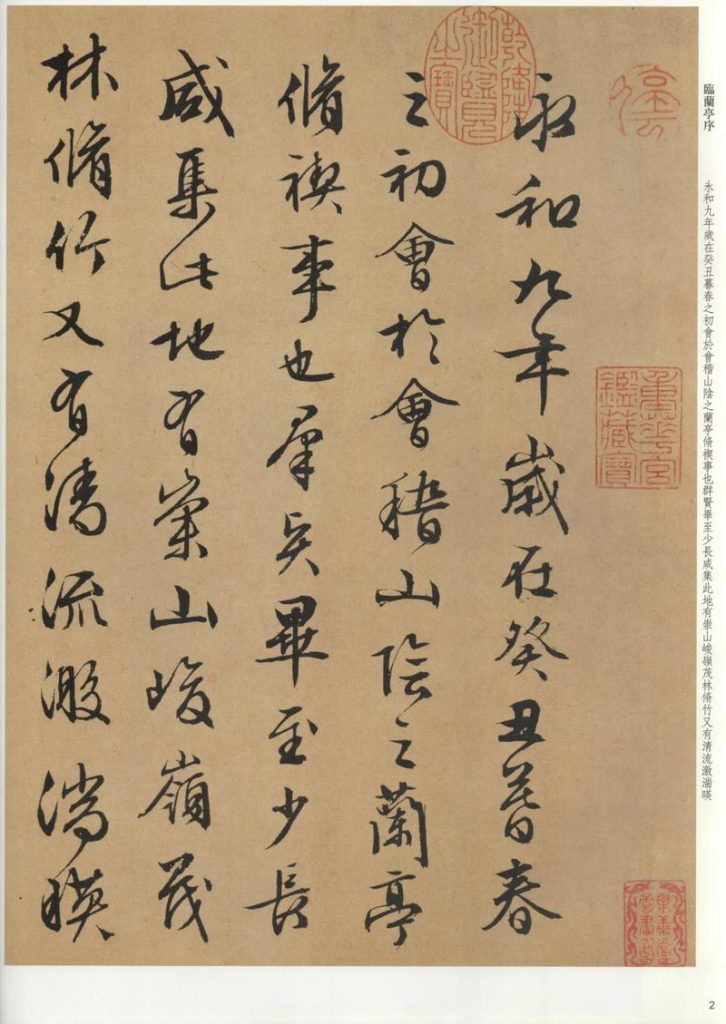 臨蘭亭序
永和九年歲在癸丑暮春之初會於會稽山陰之蘭亭脩稧事也群賢畢至少長咸集此地有崇山峻嶺茂林脩竹又有清流激湍暎
重華宮鑑藏寶
樂善堂圖書記
乾隆御覽之寶
永和九年歲在癸丑暮春
之初會於會稽山陰之蘭亭
脩禊事也羣賢畢至少長
咸集此地有崇山峻嶺茂
林脩竹又有清流激湍暎
2